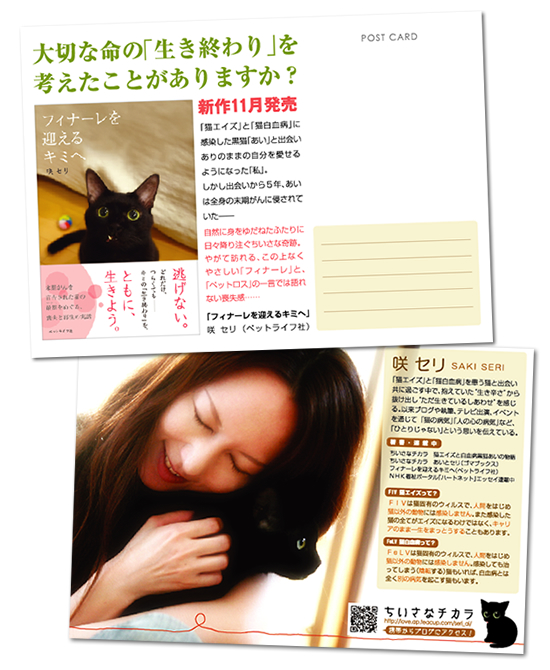 大切な命の「生き終わり」を
考えたことがありますか？
POST CARD
新作11月発売
フィナーレを
迎える
キミへ
咲 セリ
逃げない。
ともに、
生きよう。
「猫エイズ」と「猫白血病」に
感染した黒猫「あい」と出会い
ありのままの自分を愛せる
ようになった「私」。
しかし出会いから5年、あい
は全身の末期がんに侵されて
いた――
自然に身をゆだねたふたりに
日々降り注ぐちいさな奇跡。
やがて訪れる、この上なく
やさしい「フィナーレ」と、
「ペットロス」の一言では語れ
ない喪失感……
「フィナーレを迎えるキミへ」
咲 セリ（ペットライフ社）
咲 セリ SAKI SERI
「猫エイズ」と「猫白血病」を患う猫と出会い
共に過ごす中で、抱えていた“生き辛さ”から
抜け出し“ただ生きているしあわせ”を感じ
る。以来ブログや執筆、テレビ出演、イベント
を通じて「猫の病気」「人の心の病気」など、
「ひとりじゃない」という思いを伝えている。
著書・連載中
ちいさなチカラ 猫エイズと白血病黒猫あいの物語
ちいさなチカラ あいとセリ（ゴマブックス）
フィナーレを迎えるキミへ（ペットライフ社）
NHK福祉ポータル「ハートネット」エッセイ連載中
FIV 猫エイズって？
FIVは猫固有のウィルスで、人間をはじめ
猫以外の動物には感染しません。また感染した
猫の全てがエイズになるわけではなく、キャリ
アのまま一生をまっとうすることもあります。
FeLV 猫白血病って？
FeLVは猫固有のウィルスで、人間をはじめ
猫以外の動物には感染しません。感染しても治
ってしまう（陰転する）猫もいれば、白血病とは
全く別の病気を起こす猫もいます。
ちいさなチカラ
http://love.ap.teacup.com/seri_ai/
携帯からブログにアクセス！